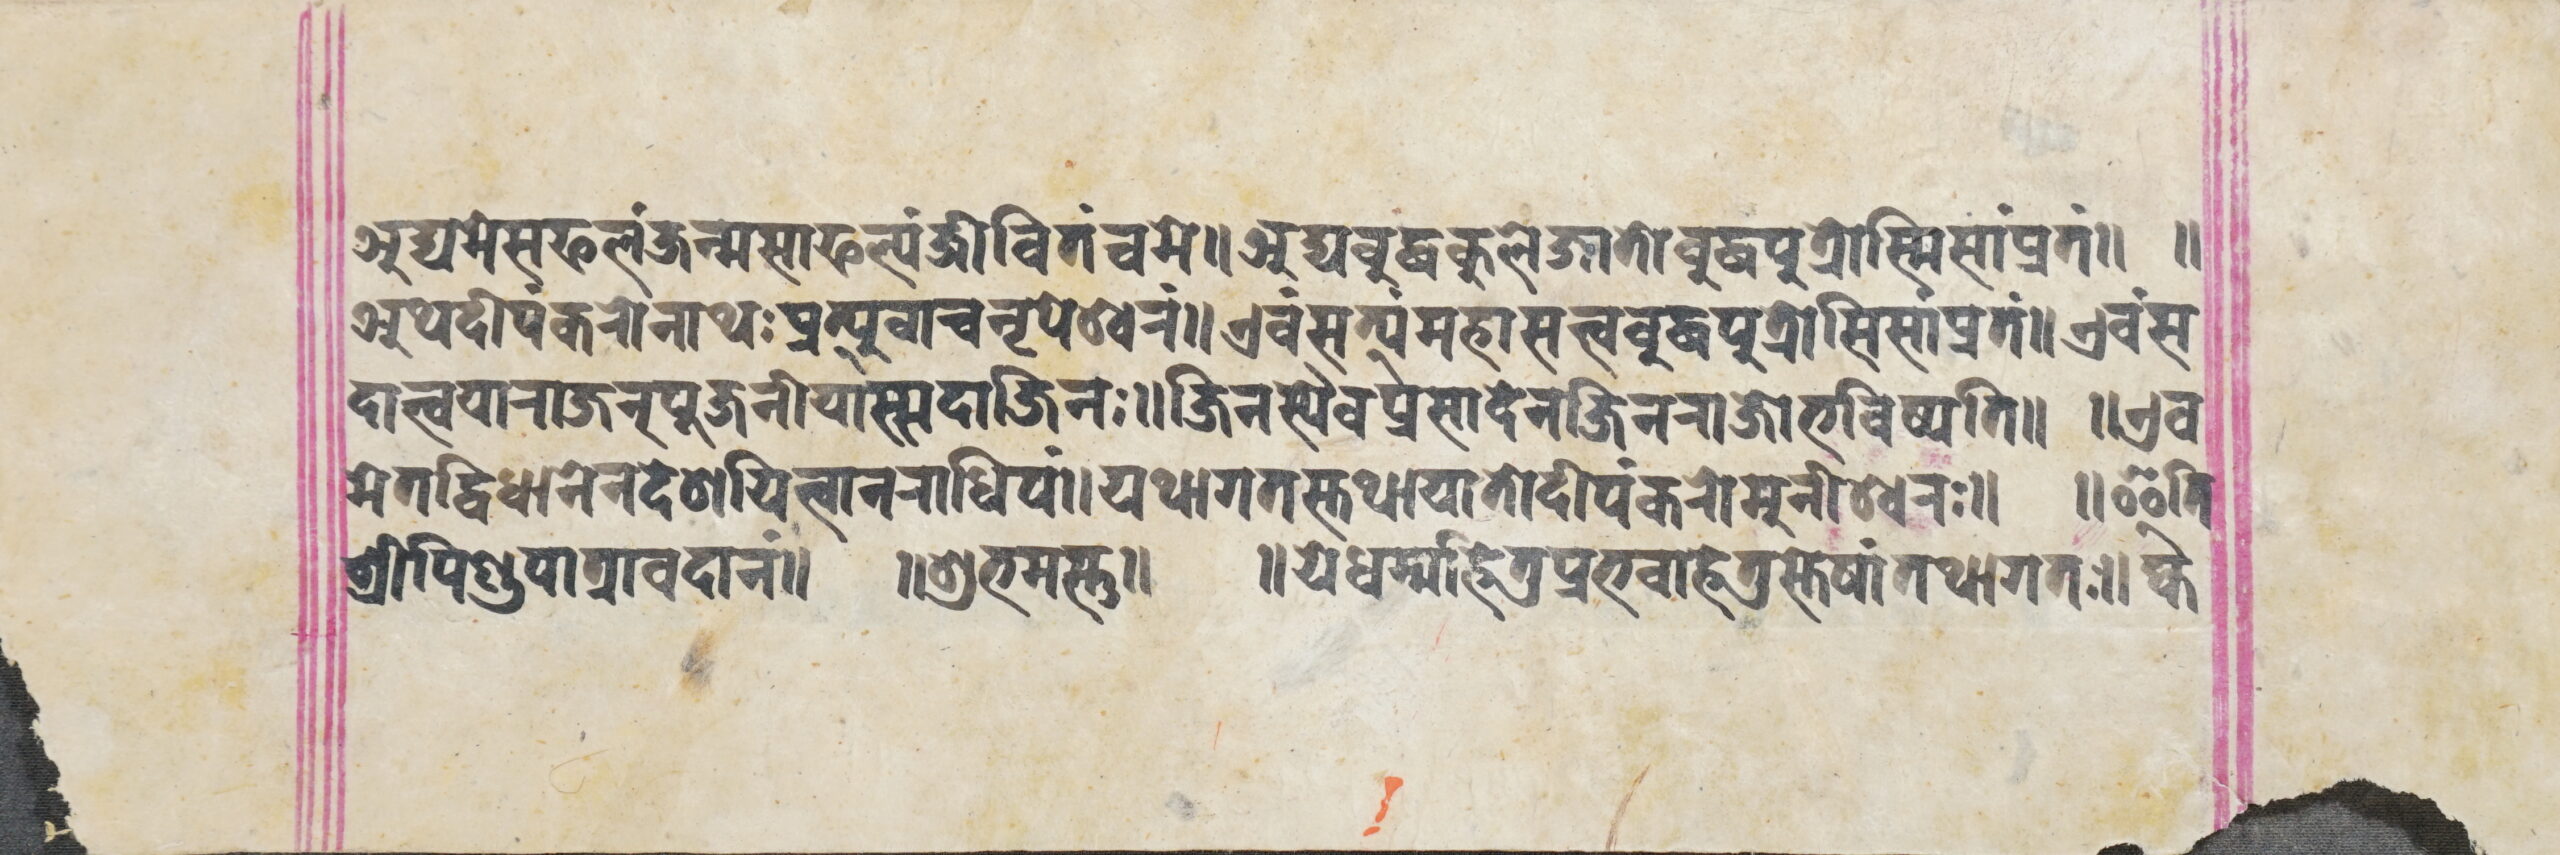 अद्यमेसफलंजन्मसाफल्यंजीवितंचमे॥ अद्यबुद्धकुलेजातोबुद्धपुत्रोस्मिसांप्रतं॥ ॥
अथदीपंकरोनाथःप्रत्युवाचनृपेश्वरं॥ एवंसत्यंमहासत्त्वबुद्धपुत्रोसिसांप्रतं॥ एवंस
दात्वयाराजन्पूजनीयास्मदाजिनः॥ जिनस्यैवप्रसादेनजिनराजोभविष्यति॥ ॥एव
मेतद्विधानेनदेशयित्वानराधिपां॥ यथागतस्तथायातोदीपंकरोमुनीश्वरः॥ ॥इति
श्रीपिण्डपात्रावदानं॥ ॥शुभमस्तु॥ ॥येधर्म्माहेतुप्रभवाहेतुस्तेषांतथागतः॥